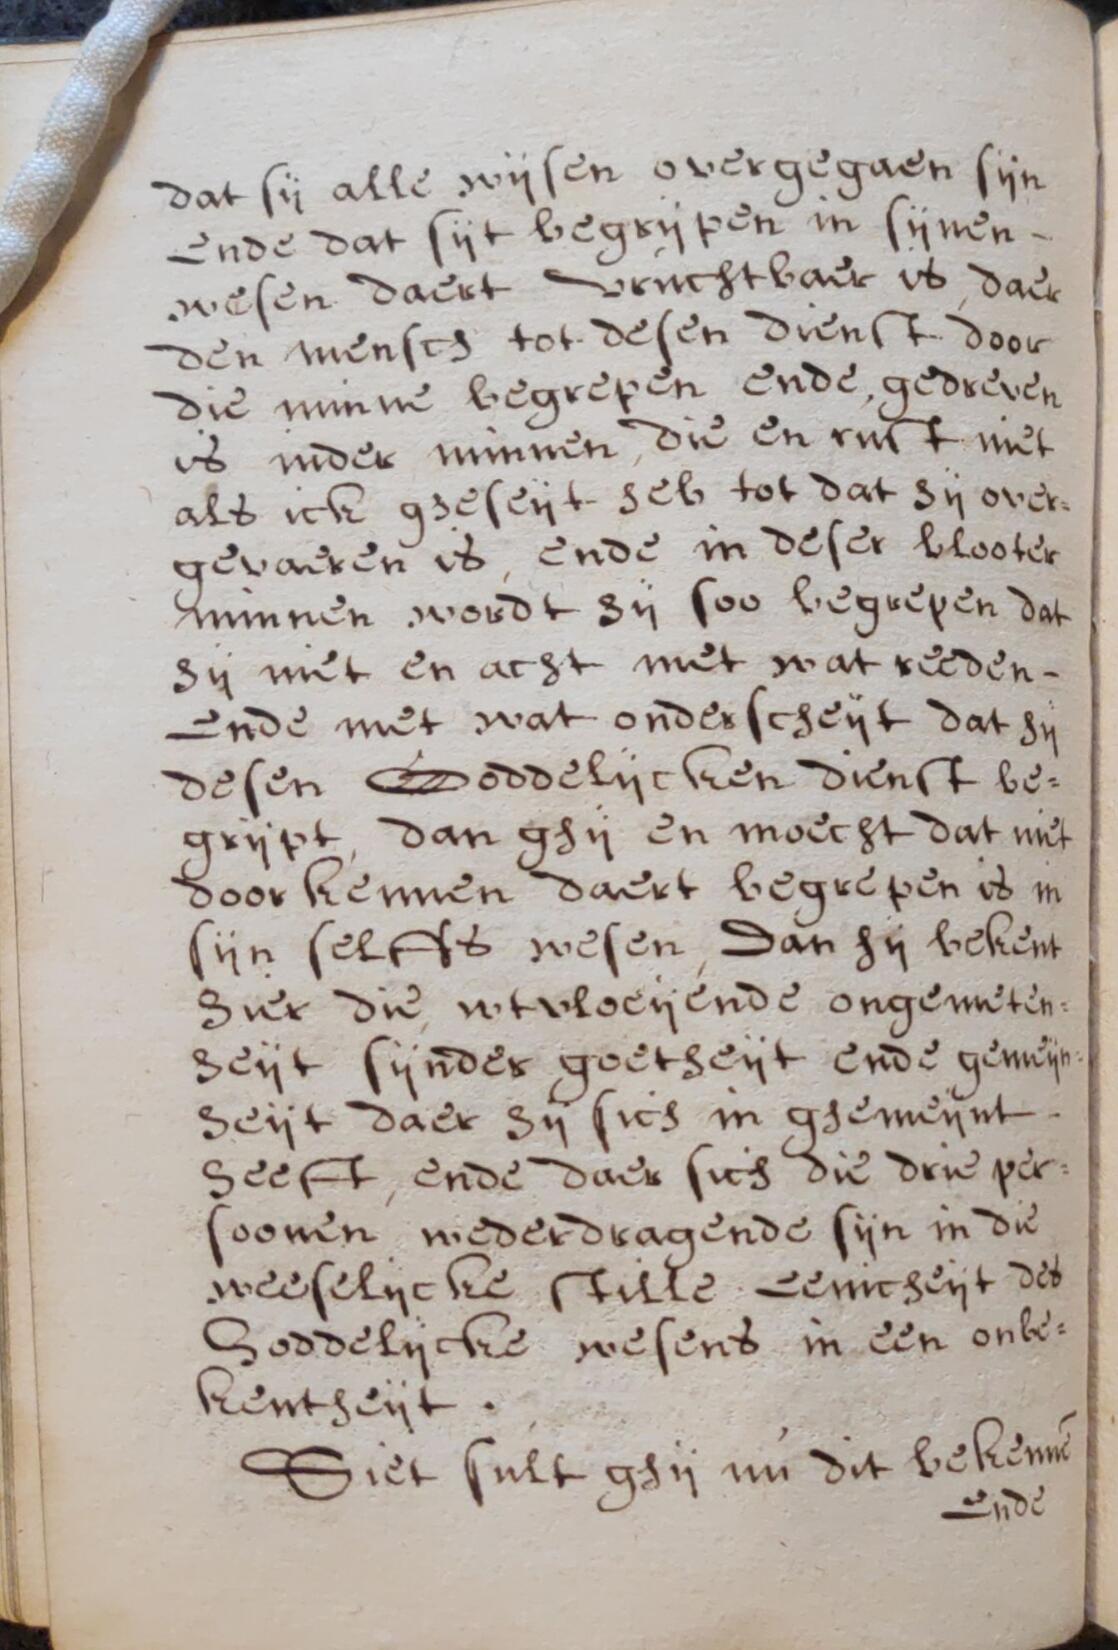 dat sij alle wijsen overgegaen sijn
Ende dat sijt begrijpen in sijnen -
wesen daert vruchtbaer is, daer
den mensch tot desen dienst door
die minne begrepen ende, gedreven
is inder minnen, die en rust niet
als ick gheseijt heb tot dat hij over=
gevaeren is, ende in deser blooter
minnen wordt hij soo begrepen dat
hij niet en acht met wat reeden -
Ende met wat onderscheijt dat hij
desen Goddelijcken dienst be=
grijpt, dan ghij en moecht dat niet
doorkennen daert begrepen is in
sijn selffs wesen, Dan hij bekent
hier die, wtvloeijende ongemeten=
heijt sijnder goetheijt ende gemeijn=
heijt daer hij sich in ghemeijnt -
heeft, ende daer sich die drie per=
soonen wederdragende sijn in die
weeselijcke stille Eenicheijt des
Goddelijcke wesens in een onbe=
kentheijt .
Siet sult ghij nú dit bekennē
Ende